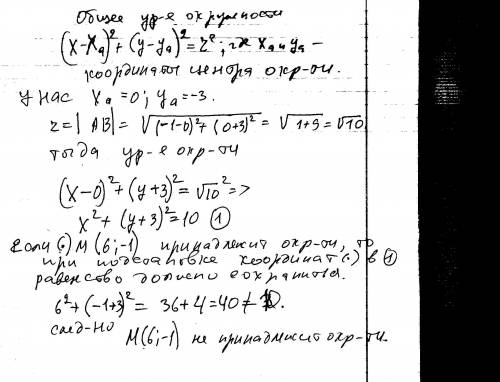 Общее ур-е окружности
(x-xₐ)²+(y-yₐ)²=r²; где xₐ и yₐ –
координаты центра окр-ти.
У нас xₐ=0; yₐ=-3.
r=|AB|=√((-1-0)²+(0+3)²)=√(1+9)=√10
тогда ур-е окр-ти
(x-0)²+(y+3)²=√10² =>
x²+(y+3)²=10 ①
Если (·) M(6;-1) принадлежит окр-ти, то
при подстановке координат (·) в ①
равенство должно сохраниться.
6²+(-1+3)²=36+4=40≠10.
след-но
M(6;-1) не принадлежит окр-ти.